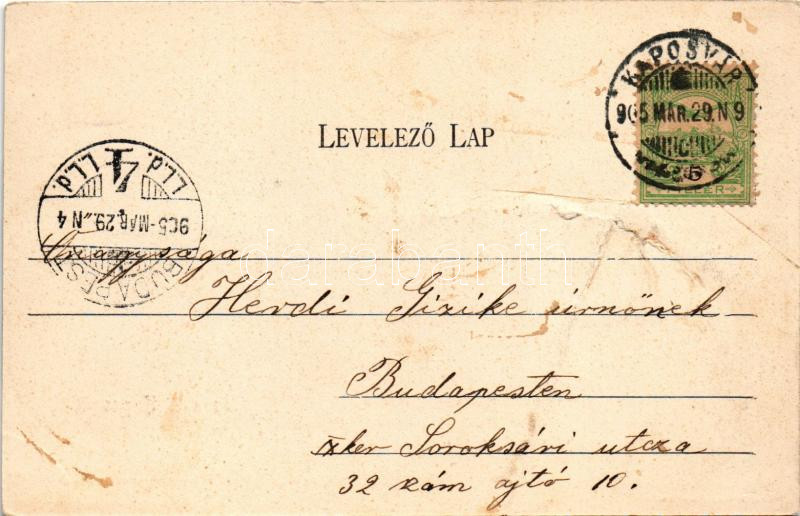 LEVELEZŐ LAP
KAPOSVÁR
905 MAR.29.N 9
L.L.d. 4 L.L.d.
905-MAR.29.N 4
BUDAPEST
FILLÉR
darabanth
Önagysága
Hevdi Gizike úrnőnek
Budapesten
IX ker Soroksári utcza
32 szám ajtó 10.